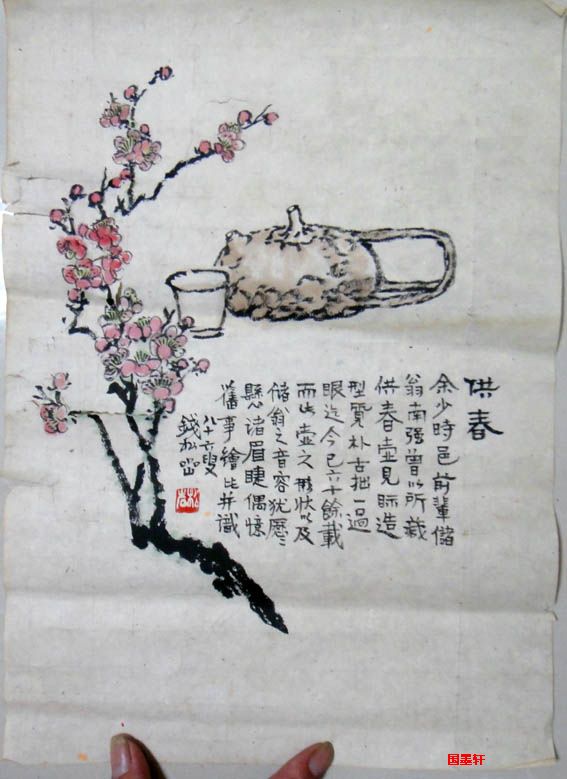 供春
余少時邑前輩儲
翁南强曾以所藏
供春壺見眎造
型寬朴古拙一過
眼迄今已六十餘載
而此壺之形狀以及
儲翁之音容犹歷〻
懸諸眉睫偶憶
舊事繪此并識
八十六叟
錢松嵒
国墨轩